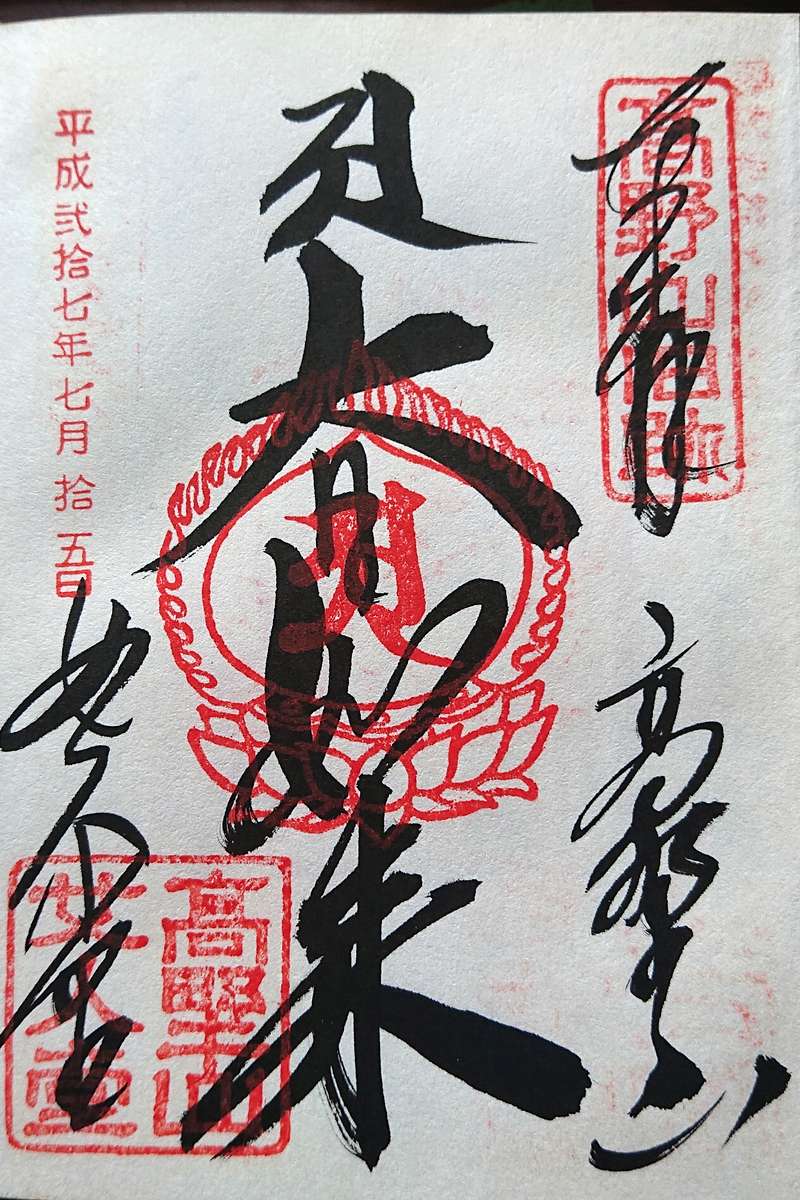 奉拝
高野山
高野山旧跡
大日如来
平成弐拾七年七月拾五日
女人堂
高野山
女人堂